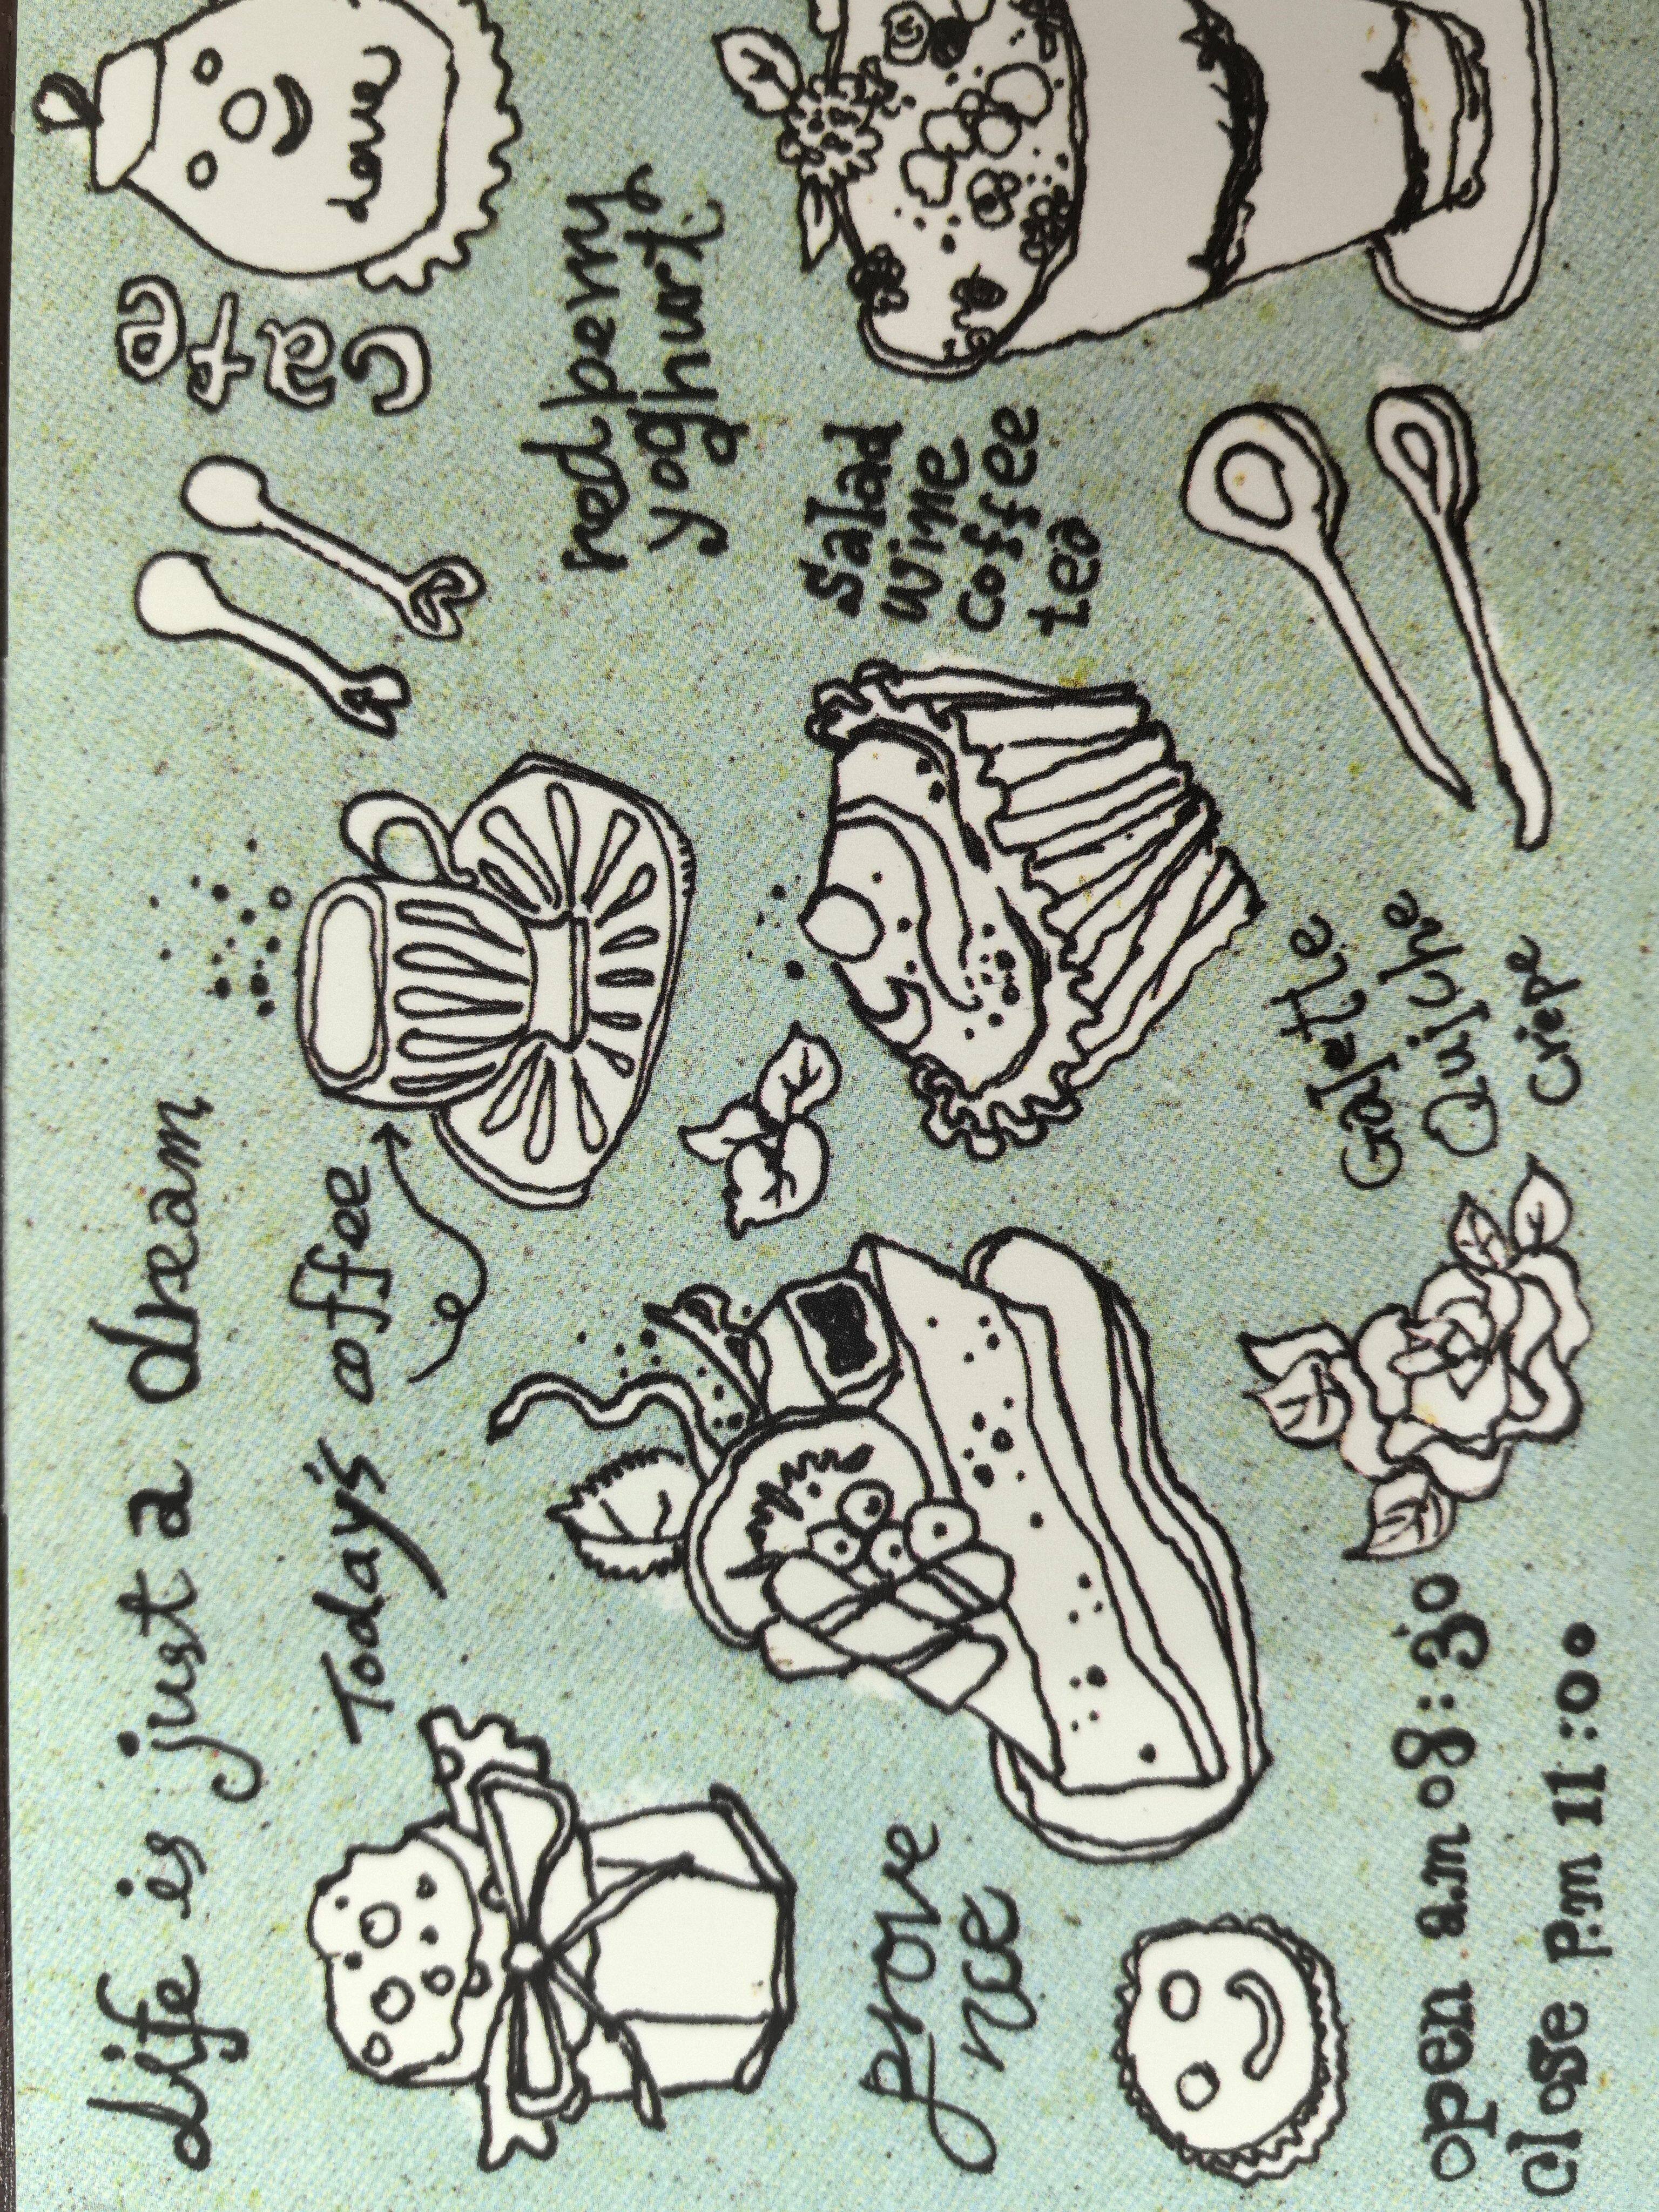 Life is just a dream
cafe
love
Today's coffee
red perry
yoghurt
salad
wine
coffee
tea
prove
nce
Galette
Quiche
crepe
open a.m 08:30
close P.m 11:00